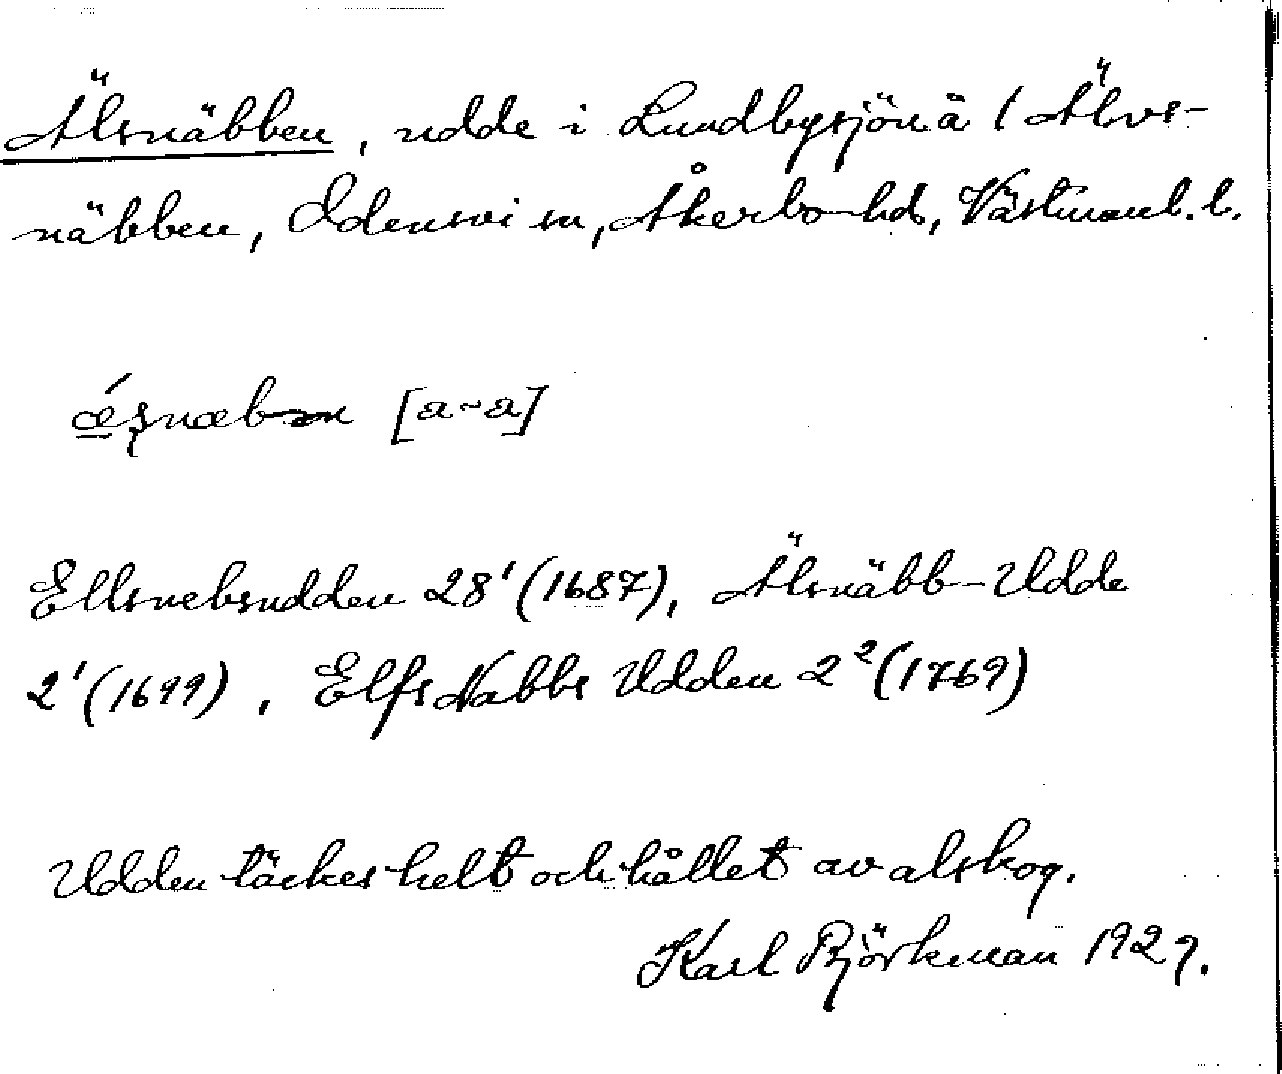 Älsnäbben, udde i Lundbysjön ä / Älvs-
näbben, Odensvi sn, Åkerbo hd, Västmanl. l.
[a~a]
Ellsnebsudden 28¹ (1687), Älsnäbb-Udde
2¹ (1699), Elfs Nabbs Udden 2² (1769)
Udden täckes helt och hållet av alskog.
Karl Björkman 1929.